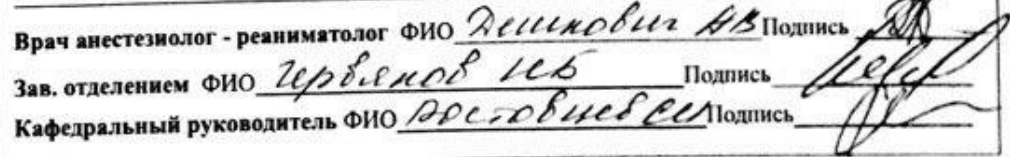 Врач анестезиолог - реаниматолог ФИО Дешкович АВ Подпись
Зав. отделением ФИО Червяков ИБ Подпись
Кафедральный руководитель ФИО Ростовцев СМ Подпись